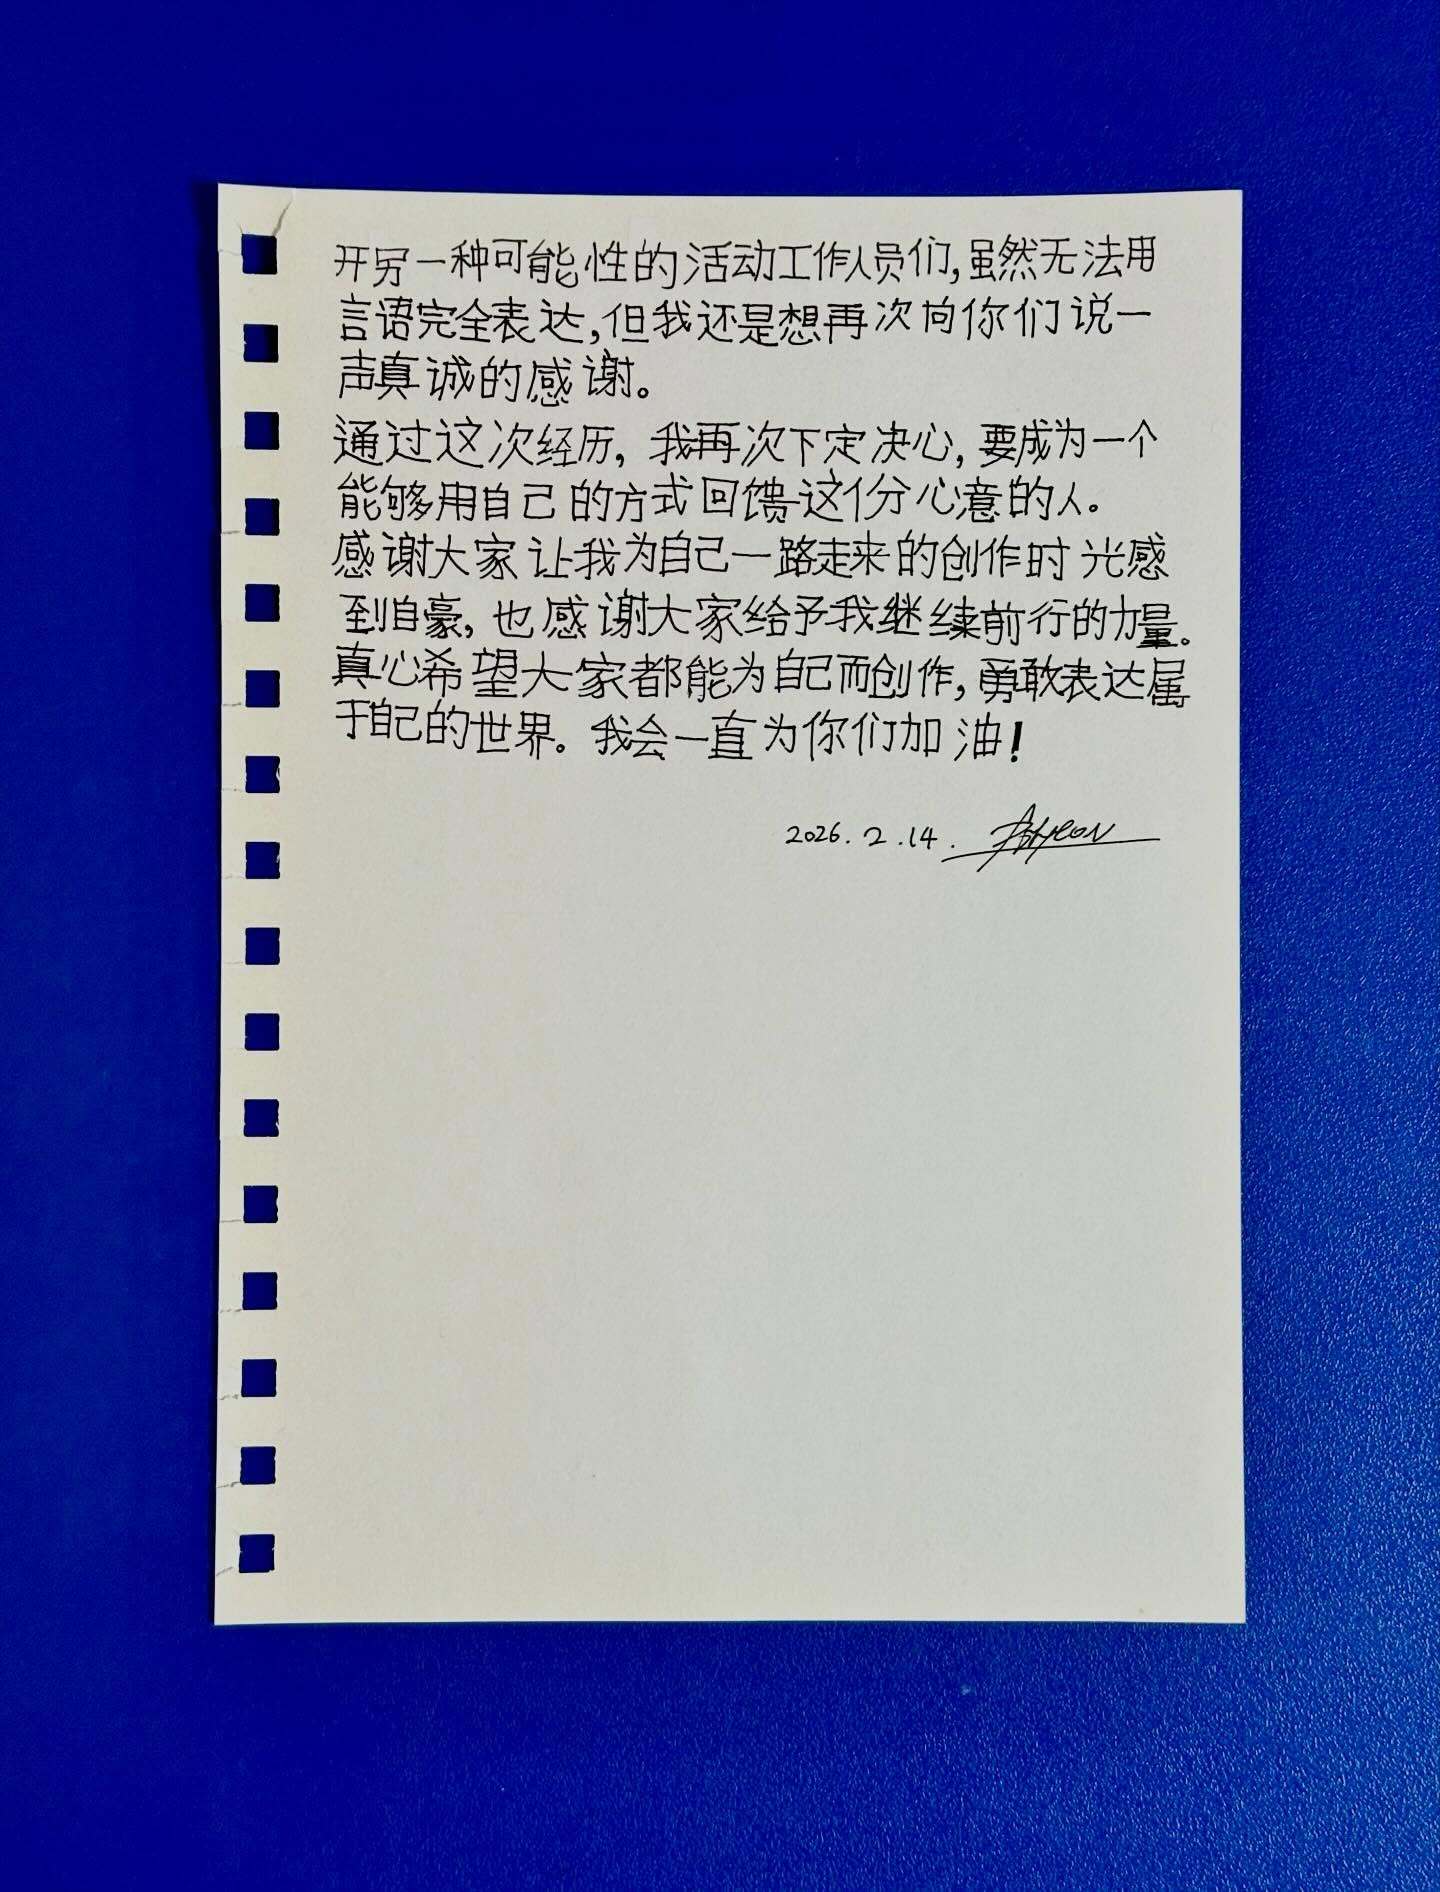 开另一种可能性的活动工作人员们,虽然无法用
言语完全表达,但我还是想再次向你们说一
声真诚的感谢。
通过这次经历,我再次下定决心,要成为一个
能够用自己的方式回馈这份心意的人。
感谢大家让我为自己一路走来的创作时光感
到自豪,也感谢大家给予我继续前行的力量。
真心希望大家都能为自己而创作,勇敢表达属
于自己的世界。我会一直为你们加油!
2026.2.14.